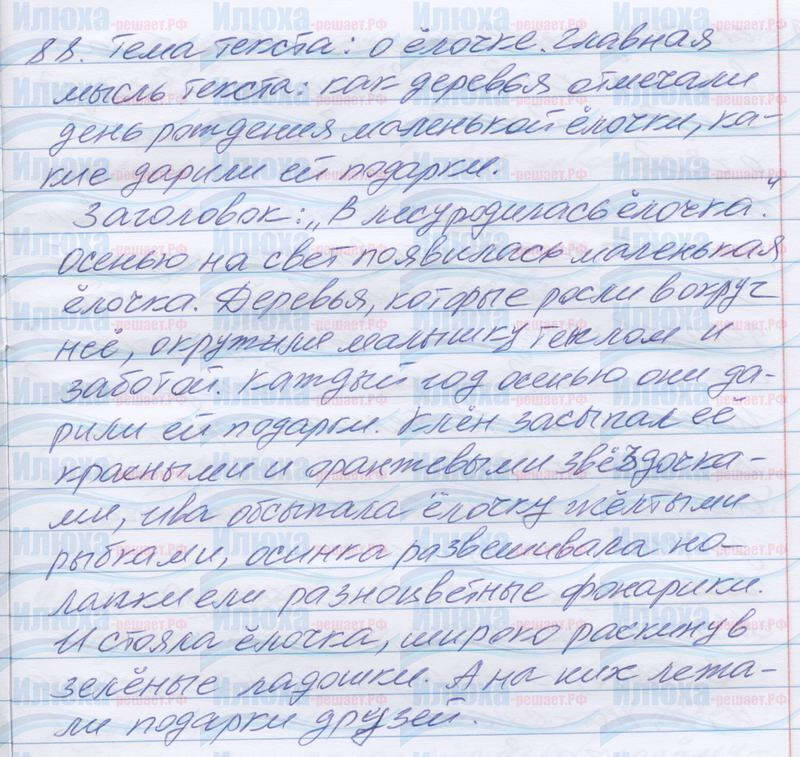 88. Тема текста: о ёлочке. Главная
мысль текста: как деревья отмечали
день рождения маленькой ёлочки, ка-
кие дарили ей подарки.
Заголовок: „В лесу родилась ёлочка."
Осенью на свет появилась маленькая
ёлочка. Деревья, которые росли вокруг
неё, окружили малышку теплом и
заботой. Каждый год осенью они да-
рили ей подарки. Клён засыпал её
красными и оранжевыми звёздочка-
ми, ива обсыпала ёлочку жёлтыми
рыбками, осинка развешивала на
лапки ели разноцветные фонарики.
И стояла ёлочка, широко раскинув
зелёные ладошки. А на них лежа-
ли подарки друзей.